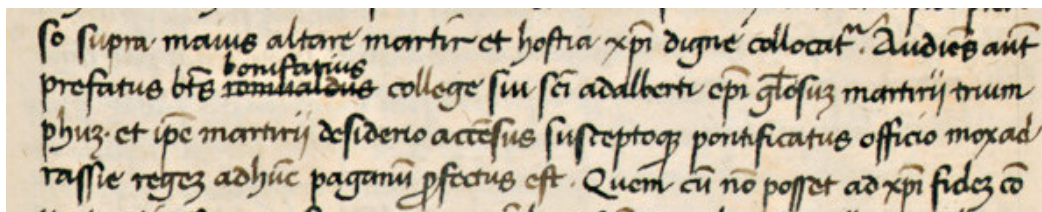 so supra maius altare martir et hostia xp̄i digne collocat͛. Audiēs aūt
bonifatius
prefatus bt̄s romualdus college sui sc̄i adalberti ep̄i gl̄osuꝫ martirii trium
phuꝫ. et ip̄e martirii desiderio accēsus susceptoqꝫ pontificatus officio mox ad
rassie regeꝫ adhūc paganū ꝓfectus est. Quem cū nō posset ad xp̄i fideꝫ cō